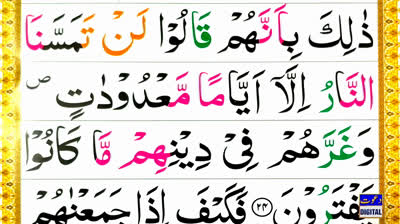 ذٰلِكَ بِاَنَّهُمْ قَالُوْا لَنْ تَمَسَّنَا
النَّارُ اِلَّاۤ اَيَّامًا مَّعْدُوْدٰتٍ ۪ص
وَغَرَّهُمْ فِىْ دِيْنِهِمْ مَّا كَانُوْا
يَفْتَرُوْنَ ﴿۲۴﴾ فَكَيْفَ اِذَا جَمَعْنٰهُمْ
دعوت
DIGITAL